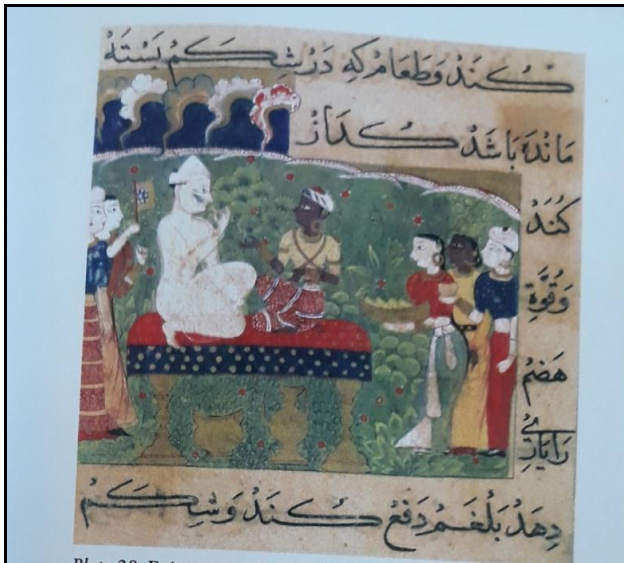 کُنَدْ وَطَعَامْ کِه دَرْ شِکَمْ بَسْتَهْ
مَانْدَه بَاشَدْ کُدَازْ
کُنَدْ
وَقُوَّةِ
هَضمْ
رَایَارِیْ
دِهَدْ بَلْغَمْ دَفْعْ کُنَدْ وَشِکَمْ
Plate 28